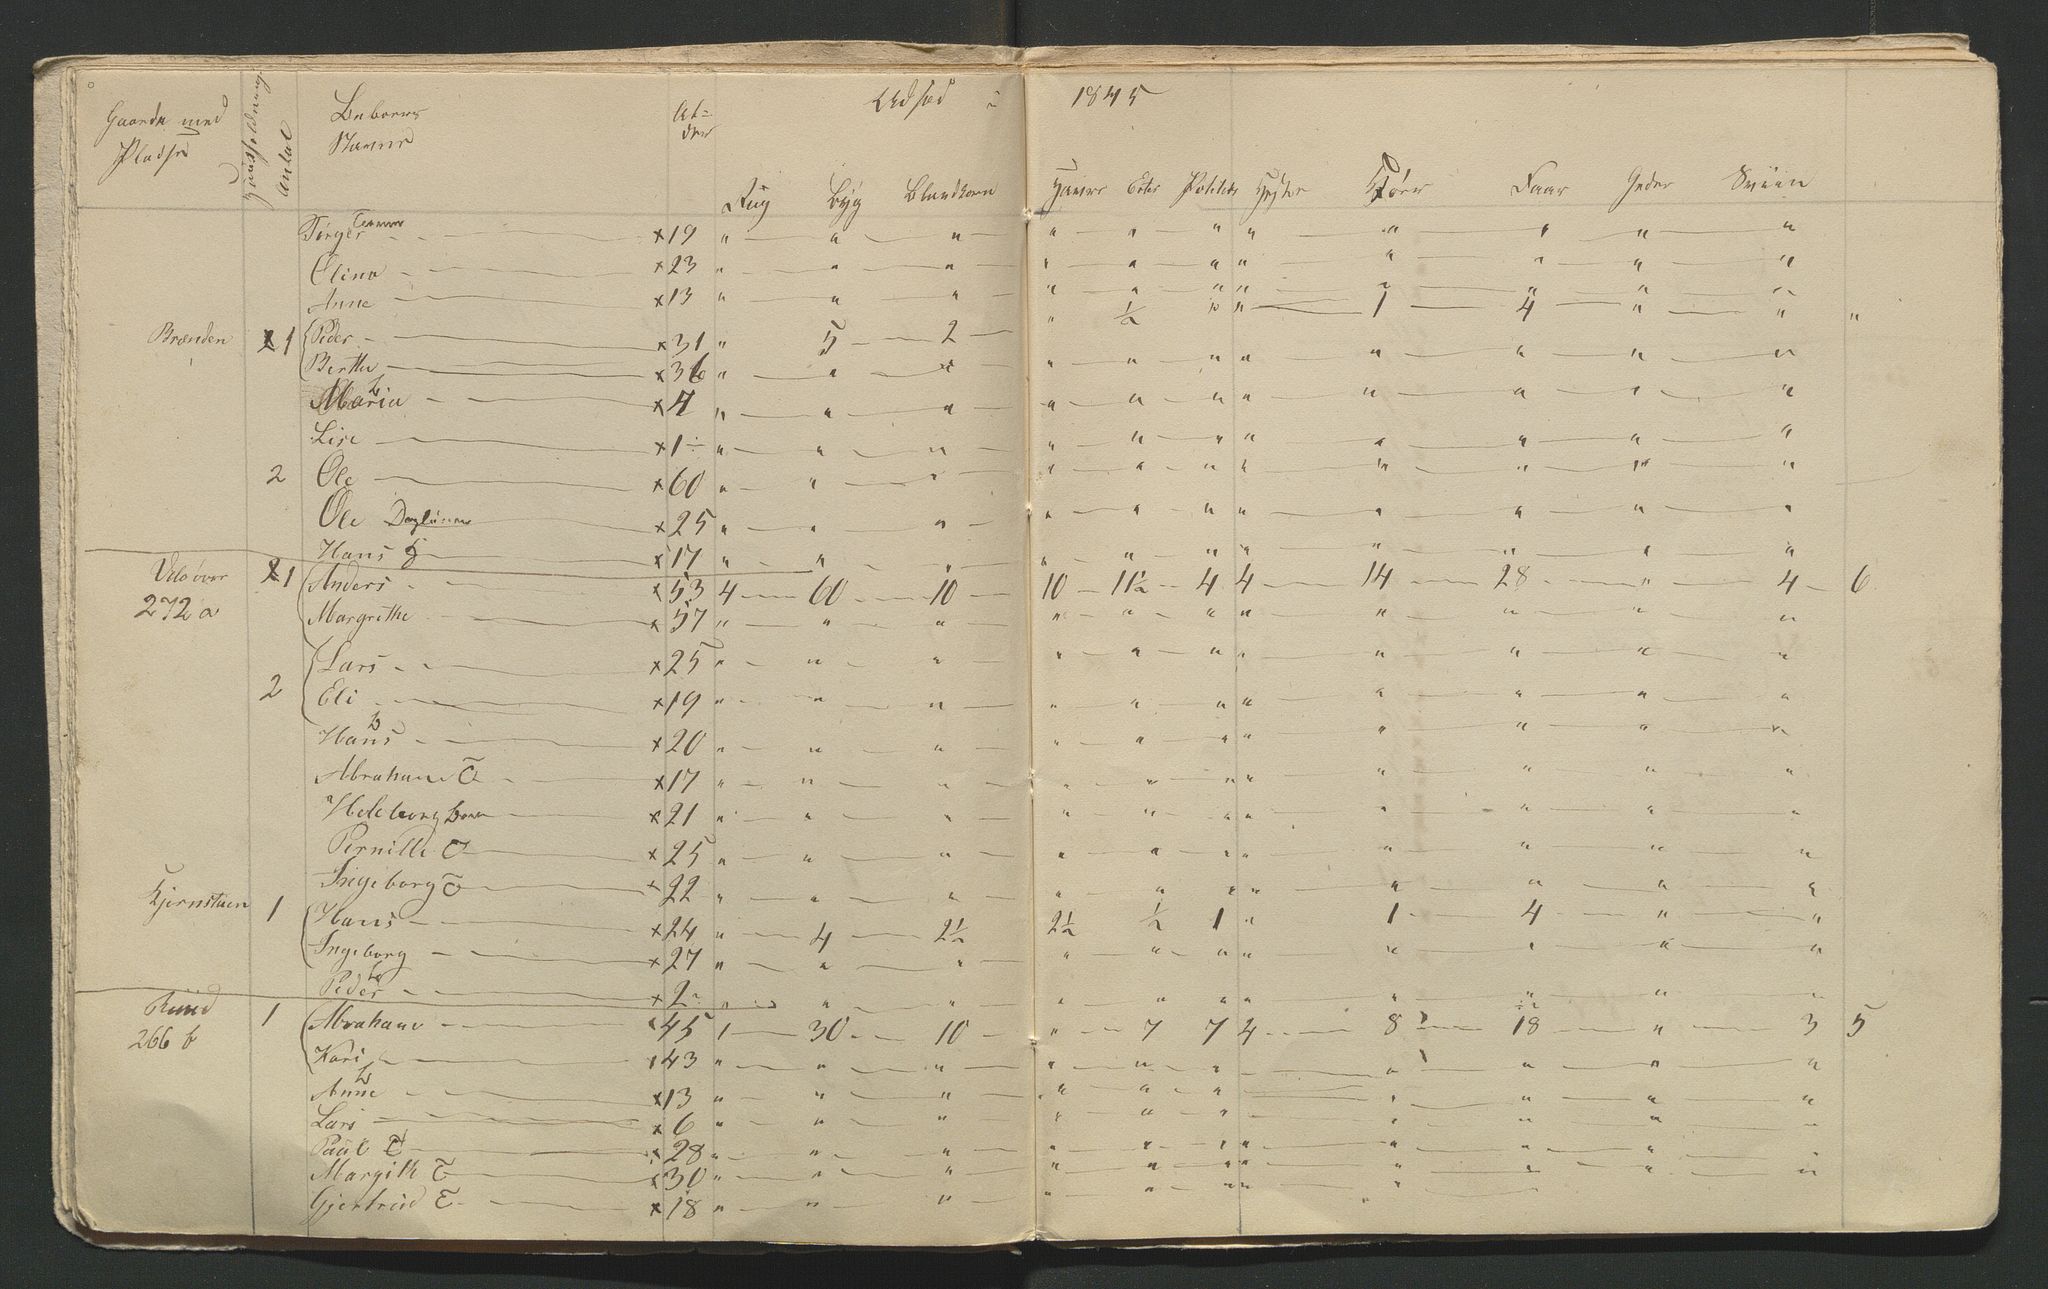 Gaarde med Pladse
Huusholdning Antal
Beboers Navne
Al=der
Udsæd i 1845
Rug Byg Blandkorn Havre Erter Poteter Heste Kjöer Faar Geder Sviin
Törger Tienner x 19 " " " " " " " " " " "
Elina x 23 " " " " " " " " " " "
Anne x 13 " " " " " " " " " " "
Brænden 1 Peder x 31 " 5 2 " 1/2 " " 1 4 " " "
Berthe x 36 " " " " " " " " " " "
Maria b x 4 " " " " " " " " " " "
Lise x 1 " " " " " " " " " " "
2 Ole x 60 " " " " " " " " " " "
Ole Daglönner x 25 " " " " " " " " " " "
Hans x 17 " " " " " " " " " " "
272 a 1 Anders x 53 4 60 10 10 11 1/2 4 4 14 28 " 4 6
Margrethe x 57 " " " " " " " " " " "
2 Lars x 25 " " " " " " " " " " "
Eli x 19 " " " " " " " " " " "
Hans b x 20 " " " " " " " " " " "
Abraham T x 17 " " " " " " " " " " "
Heleborg x 21 " " " " " " " " " " "
Pernille T x 25 " " " " " " " " " " "
Ingeborg T x 22 " " " " " " " " " " "
Kjernstuen 1 Hans x 24 " 4 2 1/2 2 1/2 1/2 1 " 1 4 " "
Ingeborg x 27 " " " " " " " " " " "
Peder b x 2 " " " " " " " " " " "
Ruud 266 b 1 Abraham x 45 1 30 10 " 7 7 4 8 18 " 3 5
Kari x 43 " " " " " " " " " " "
Anne b x 13 " " " " " " " " " "
Lars x 6 " " " " " " " " "
Paul T x 28 " " " " " " " " " " "
Margith T x 30 " " " " " " " " " " "
Gjertrud T x 18 " " " " " " " "